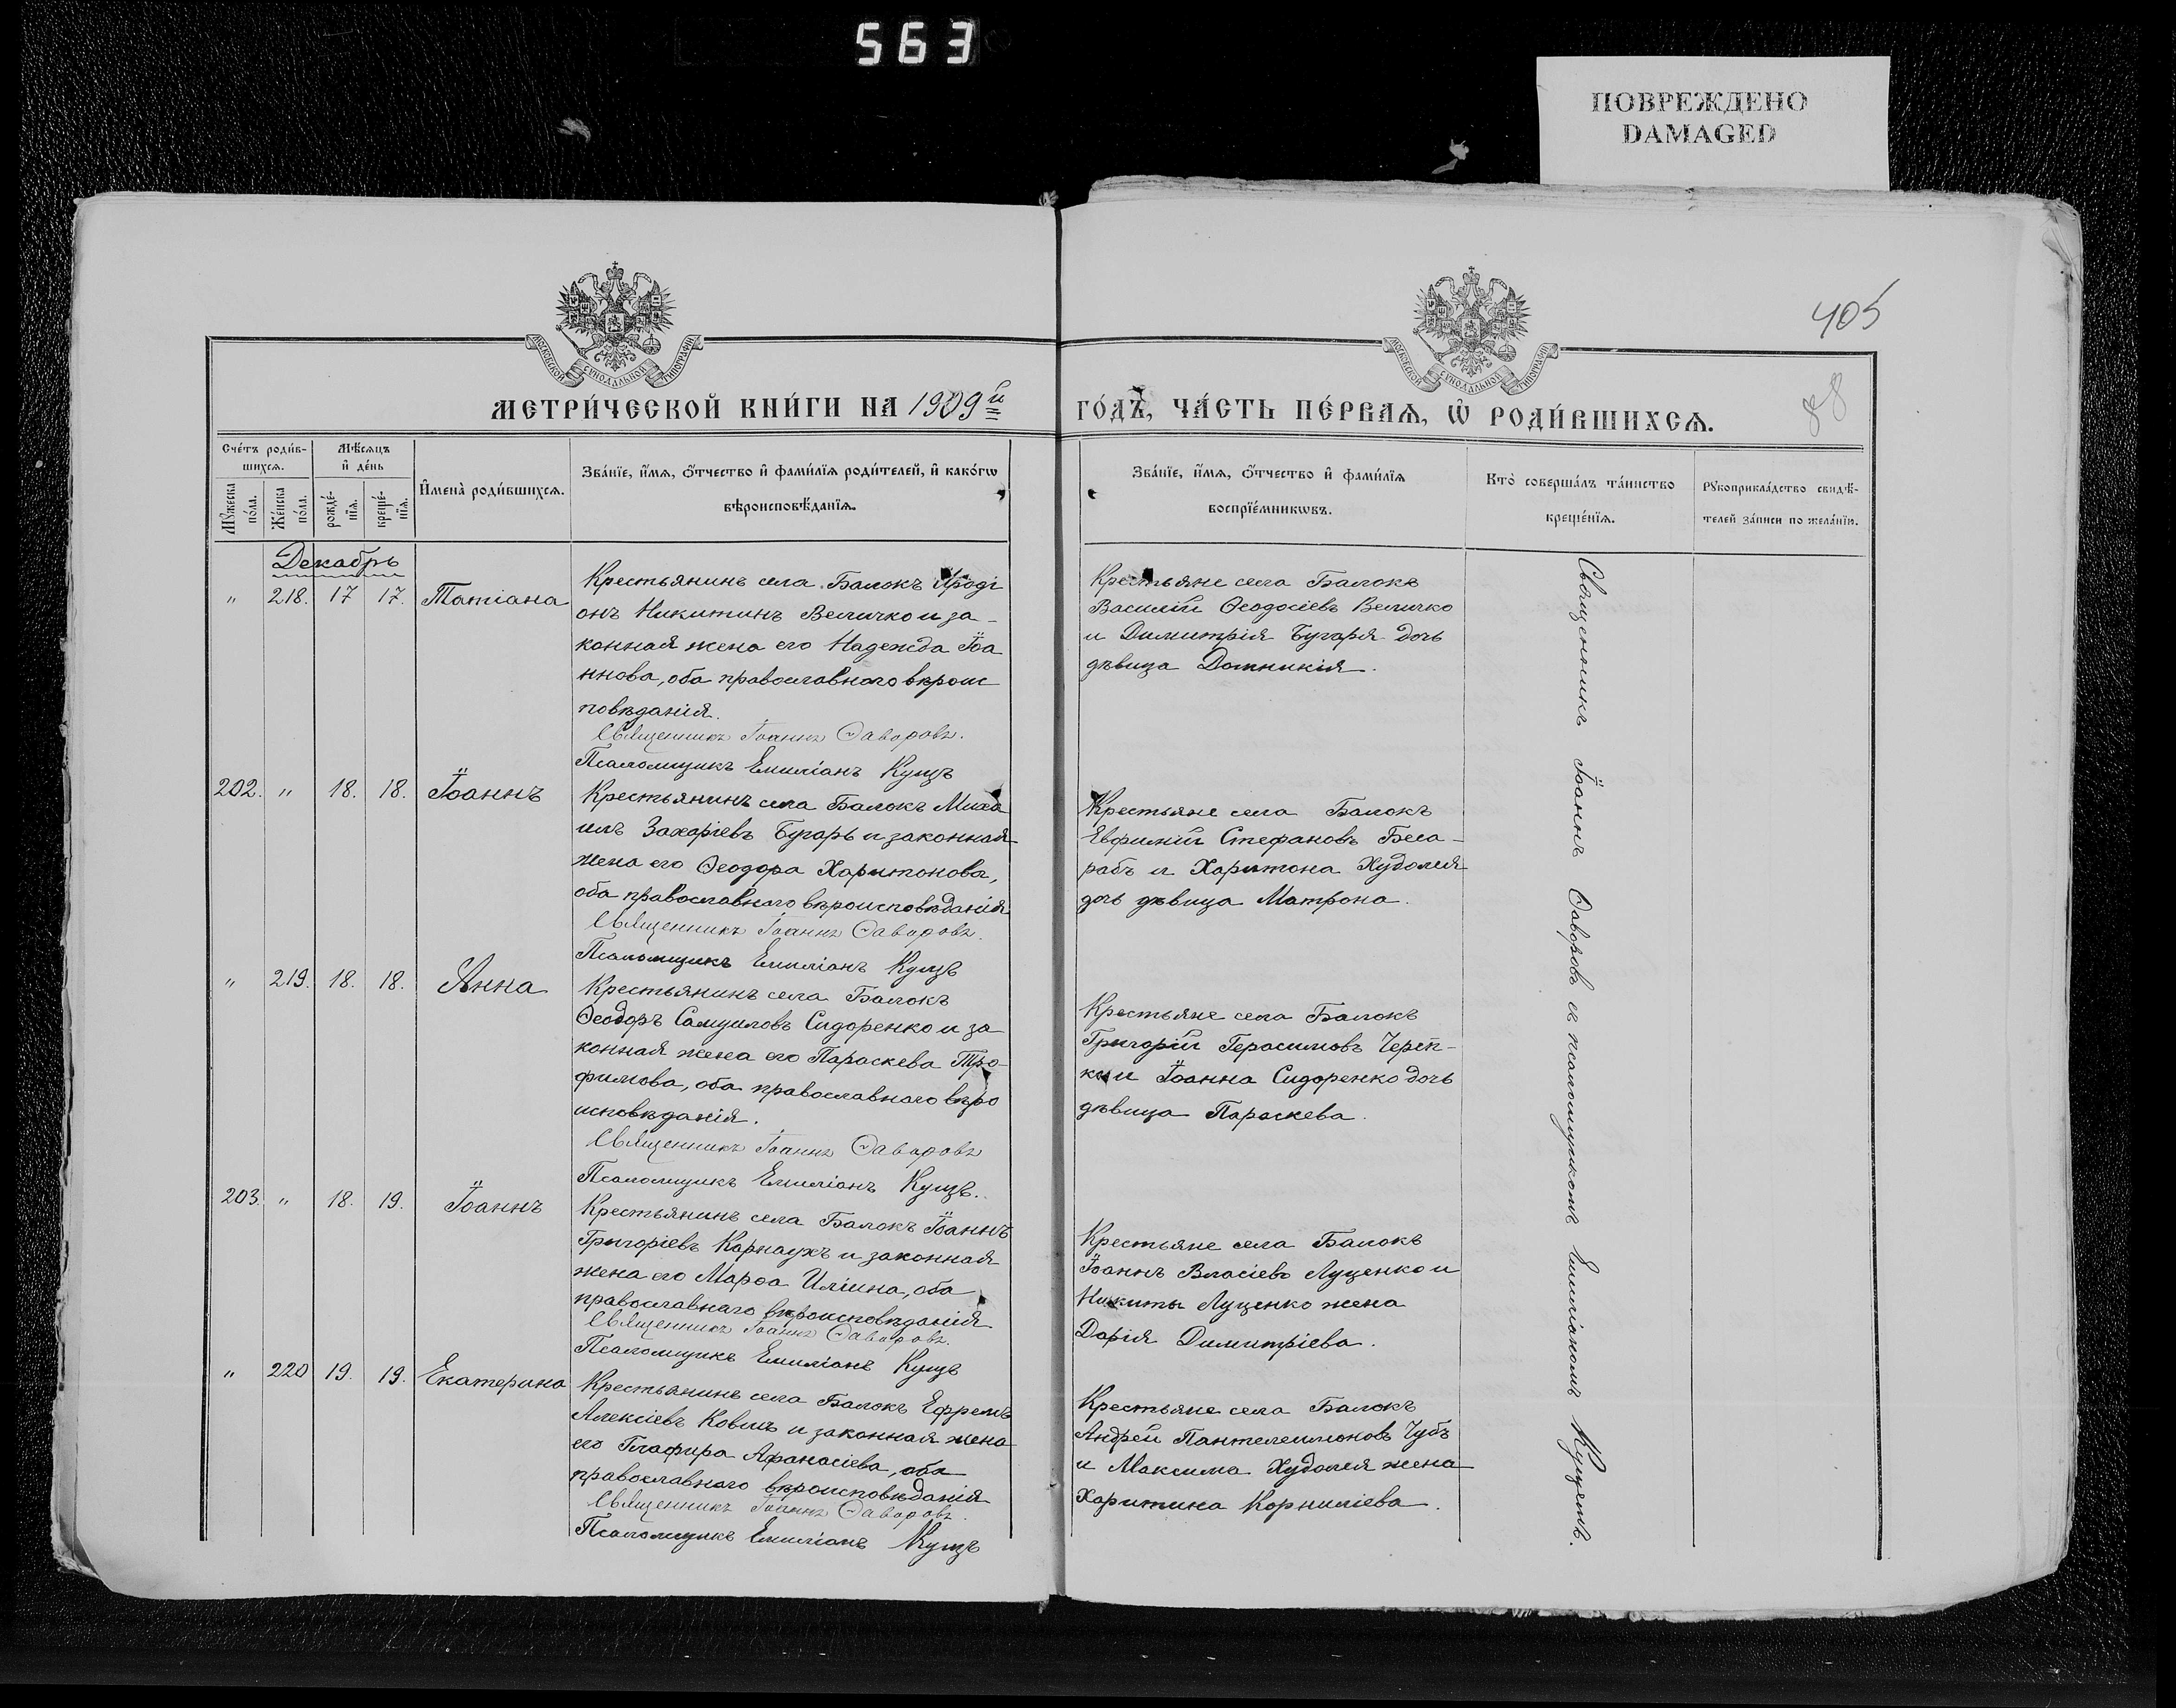 563
ПОВРЕЖДЕНО
DAMAGED
405
88
МОСКОВСКОЙ СѴНОДАЛЬНОЙ ТИПОГРАФІИ
МОСКОВСКОЙ СѴНОДАЛЬНОЙ ТИПОГРАФІИ
МЕТРИ́ЧЕСКОЙ КНИ́ГИ НА 1909й
ГО́ДЪ, ЧА́СТЬ ПЕ́РВАѦ, Ѡ҆ РОДИ́ВШИХСѦ.
Сче́тъ роди́в-
шихсѧ.
Мꙋ́жеска
по́ла.
Же́нска
по́ла.
Мѣ́сѧцъ
и҆ де́нь
рожде́-
нїѧ.
креще́-
нїѧ.
И҆мена̀ роди́вшихсѧ.
Зва́нїе, и҆́мѧ, ѻ҆́тчество и҆ фами́лїѧ роди́телей, и҆ како́гѡ
вѣроисповѣ́данїѧ.
Зва́нїе, и҆́мѧ, ѻ҆́тчество и҆ фами́лїѧ
воспрїе́мникѡвъ.
Кто̀ соверша́лъ та́инство
креще́нїѧ.
Рꙋкоприкла́дство свидѣ́-
телей за́писи по жела́нїю.
Декабрь
" 218. 17 17. Татіана
Крестьянинъ села Балокъ Иродi
онъ Никитинъ Величко и за-
конная жена его Надежда Іоа
ннова, оба православнаго вѣроис
повѣданія.
Священникъ Іоаннъ Ѳаворовъ.
Псаломщикъ Емиліанъ Куцъ
Крестьяне села Балокъ
Василій Ѳеодосіевъ Величко
и Димитрія Бугаря дочь
дѣвица Домникія.
202. " 18. 18. Іоаннъ
Крестьянинъ села Балокъ Миха
илъ Захаріевъ Бугарь и законная
жена его Ѳеодора Харитонова,
оба православнаго вѣроисповѣданія
Священникъ Іоаннъ Ѳаворовъ.
Псаломщикъ Емиліанъ Куцъ
Крестьяне села Балокъ
Евфимій Стефановъ Беса-
рабъ и Харитона Худолея
дочь дѣвица Матрона.
" 219. 18. 18. Анна
Крестьянинъ села Балокъ
Ѳеодоръ Самуиловъ Сидоренко и за
конная жена его Параскева Тро-
фимова, оба православнаго вѣро
исповѣданія.
Священникъ Іоаннъ Ѳаворовъ
Псаломщикъ Емиліанъ Куцъ.
Крестьяне села Балокъ
Григорій Герасимовъ
и Іоанна Сидоренко дочь
дѣвица Параскева.
203. " 18. 19. Іоаннъ
Крестьянинъ села Балокъ Іоаннъ
Григоріевъ Карнаухъ и законная
жена его Марѳа Иліина, оба
православнаго вѣроисповѣданія
Священникъ Іоаннъ Ѳаворовъ.
Псаломщикъ Емиліанъ Куцъ
Крестьяне села Балокъ
Іоаннъ Власіевъ Луценко и
Никиты Луценко жена
Дарія Димитріева.
" 220 19. 19. Екатерина
Крестьянинъ села Балокъ Ефремъ
Алексіевъ и законная жена
его Глафира Афанасіева, оба
православнаго вѣроисповѣданія
Священникъ Іоаннъ Ѳаворовъ.
Псаломщикъ Емиліанъ Куцъ
Крестьяне села Балокъ
Андрей Пантелеимоновъ Чубъ
и Максима Худолея жена
Харитина Корниліева.
Священникъ Іоаннъ Ѳаворовъ съ псаломщикомъ Емиліаномъ Куцемъ.